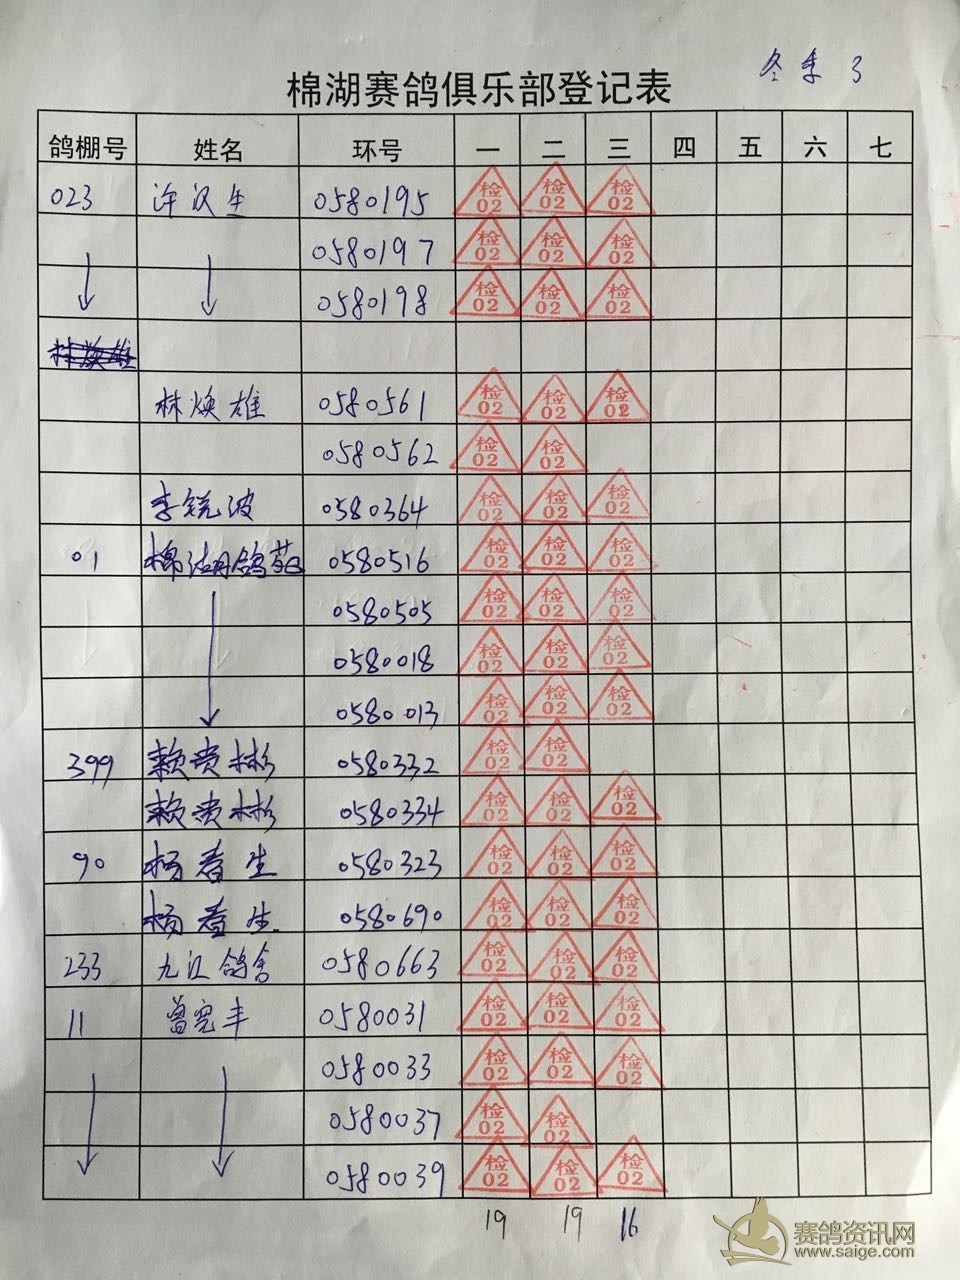 冬季 3
棉湖赛鸽俱乐部登记表
鸽棚号 姓名 环号 一 二 三 四 五 六 七
023 许汉生 0580195 检02 检02 检02
0580197 检02 检02 检02
0580198 检02 检02 检02
林焕雄
林焕雄 0580561 检02 检02 检02
0580562 检02 检02
李锐波 0580364 检02 检02 检02
01 棉湖鸽 0580516 检02 检02 检02
0580505 检02 检02 检02
0580018 检02 检02 检02
0580013 检02 检02 检02
399 赖贵彬 0580332 检02 检02
赖贵彬 0580334 检02 检02 检02
90 杨春生 0580323 检02 检02 检02
杨春生 0580690 检02 检02 检02
233 九江鸽舍 0580663 检02 检02 检02
11 曾宪丰 0580031 检02 检02 检02
0580033 检02 检02 检02
0580037 检02 检02
0580039 检02 检02 检02
19 19 16
赛鸽资讯网
www.saige.com